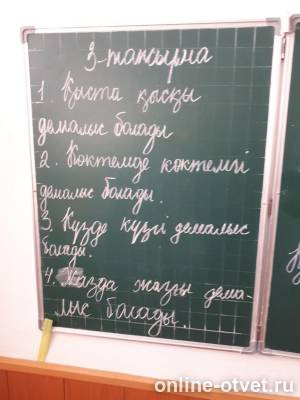 3-тапсырма
1. Қыста қысқы
демалыс болады
2. Көктемде көктемгі
демалыс болады.
3. Күзде күзгі демалыс
болады.
4. Жазда жазғы дема-
лыс болады.
online-otvet.ru